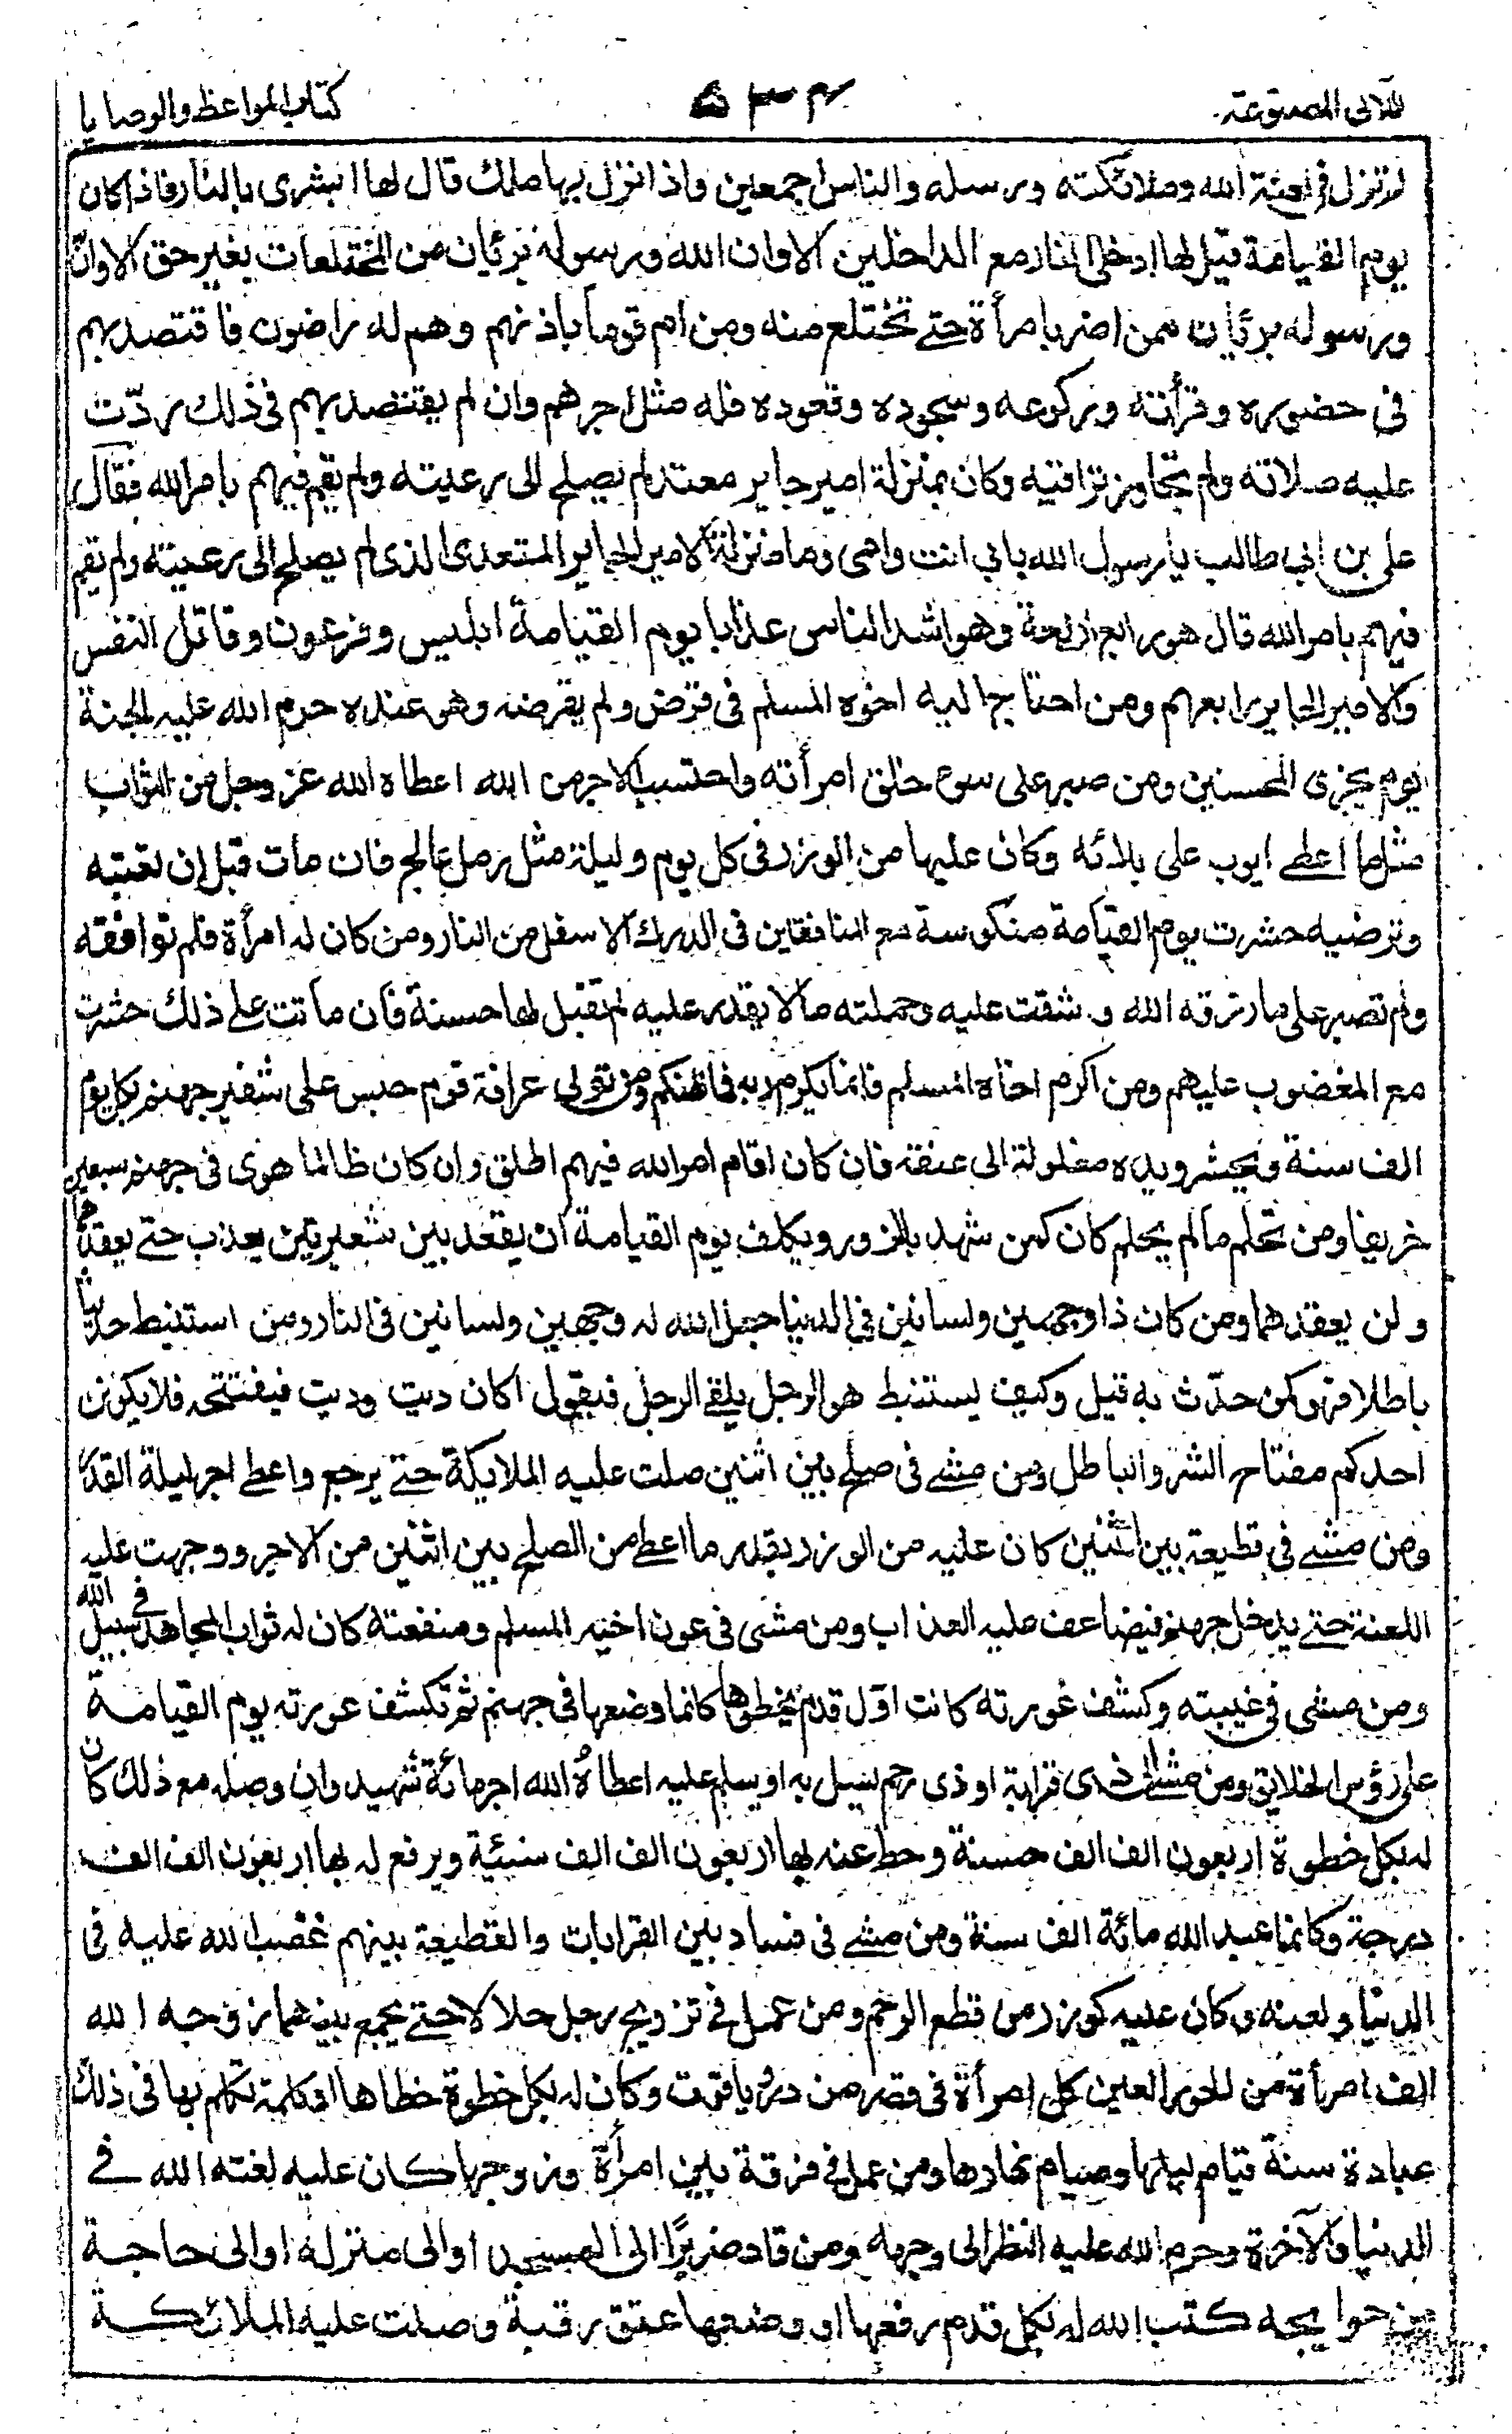 اللآلى المصنوعة
٥٣٤
كتاب المواعظ والوصايا
لم تزل فى لعنة الله وملائكته ورسله والناس اجمعين واذا نزل بها ملك قال لها ابشرى بالنار فاذا كان
يوم القيامة قيل لها ادخلى النار مع الداخلين الا وان الله ورسوله بريئان من المختلعات بغير حق الا وان الله
ورسوله بريئان ممن اضر بامرأة حتے تختلع منه ومن ام قوما باذنهم وهم له راضون فاقتصد بهم
فى حضوره وقرأته وركوعه وسجوده وقعوده فله مثل اجرهم وان لم يقتصد بهم فى ذلك ردّت
عليه صلاته ولم تجاوز تراقيه وكان بمنزلة امير جاير معتد لم يصلح الى رعيته ولم يقم فيهم بامر الله فقال
على بن ابي طالب يا رسول الله بابي انت وامى وما منزلة الامير الجاير المتعدى الذى لم يصلح الى رعيته ولم يقم
فيهم بامر الله قال هو رابع اربعة وهو اشد الناس عذابا يوم القيامة ابليس وفرعون وقاتل النفس
والامير الجاير رابعهم ومن احتاج اليه اخوه المسلم فى قرض ولم يقرضه وهو عنده حرم الله عليه الجنة
يوم يجزى المحسنين ومن صبر على سوء خلق امرأته واحتسب الاجر من الله اعطاه الله عز وجل من الثواب
مثل ما اعطے ايوب على بلائه وكان عليها من الوزر فى كل يوم وليلة مثل رمل عالج فان ماتت قبل ان تعتبه
وترضيه حشرت يوم القيامة منكوسة مع المنافقين فى الدرك الاسفل من النار ومن كان له امرأة فلم توافقه
ولم تصبر على ما رزقه الله و شقت عليه وحملته ما لا يقدر عليه لم تقبل لها حسنة فان ماتت علے ذلك حشرت
مع المغضوب عليهم ومن اكرم اخاه المسلم فانما يكرم ربه فما ظنكم ومن تولى عرافة قوم حبس على شفير جهنم بكل يوم
الف سنة ويحشر ويده مغلولة الى عنقه فان كان اقام امر الله فيهم اطلق وان كان ظالما هوى فى جهنم سبعين
خريفا ومن تحلم ما لم يحلم كان كمن شهد بالزور ويكلف يوم القيامة ان يعقد بين شعيرتين يعذب حتے يعقدهما
و لن يعقدهما ومن كان ذا وجهين ولسانين في الدنيا جعل الله له وجهين ولسانين فى النار ومن استنبط حديثا
باطلا فهو كمن حدّث به قيل وكيف يستنبط هو الرجل يلقے الرجل فيقول اكان ديت وديت فيفتتحه فلا يكونن
احدكم مفتاح الشر والباطل ومن مشے فى صلح بين اثنين صلت عليه الملايكة حتے يرجع واعطے اجر ليلة القدر
ومن مشے فى قطيعة بين اثنين كان عليه من الوزر بقدر ما اعطے من الصلح بين اثنين من الاجر ووجبت عليه
اللعنة حتے يدخل جهنم فيضاعف عليه العذاب ومن مشى فى عون اخيه المسلم ومنفعته كان له ثواب المجاهد فے سبيل الله
ومن مشى فى غيبته وكشف عورته كانت اول قدم يخطوها كانما وضعها فى جهنم ثم تكشف عورته يوم القيامة
على رؤس الخلايق ومن مشے الى ذى قرابة او ذى رحم يسيل به او يسلم عليه اعطاه الله اجر مائة شهيد وان وصله مع ذلك كان
له بكل خطوة اربعون الف الف حسنة وحط عنه بها اربعون الف الف سيئة ويرفع له بها اربعون الف الف
درجة وكانما عبد الله مائة الف سنة ومن مشے فى فساد بين القرابات والقطيعة بينهم غضب الله عليه فى
الدنيا ولعنه وكان عليه كوزر من قطع الرحم ومن عمل فى تزويج رجل حلالا حتے يجمع بينهما زوجه الله
الف امرأة من الحور العين كل امرأة فى قصر من در وياقوت وكان له بكل خطوة خطاها او كلمة تكلم بها فى ذلك
عبادة سنة قيام ليلها وصيام نهارها ومن عمل فى فرقة بين امرأة وزوجها كان عليه لعنته الله فے
الدنيا والآخرة وحرم الله عليه النظر الى وجهه ومن قاد ضريرًا الى المسجد او الى منزله او الى حاجة
من حوايجه كتب الله له بكل قدم رفعها او وضعها عتق رقبة وصلت عليه الملائكة